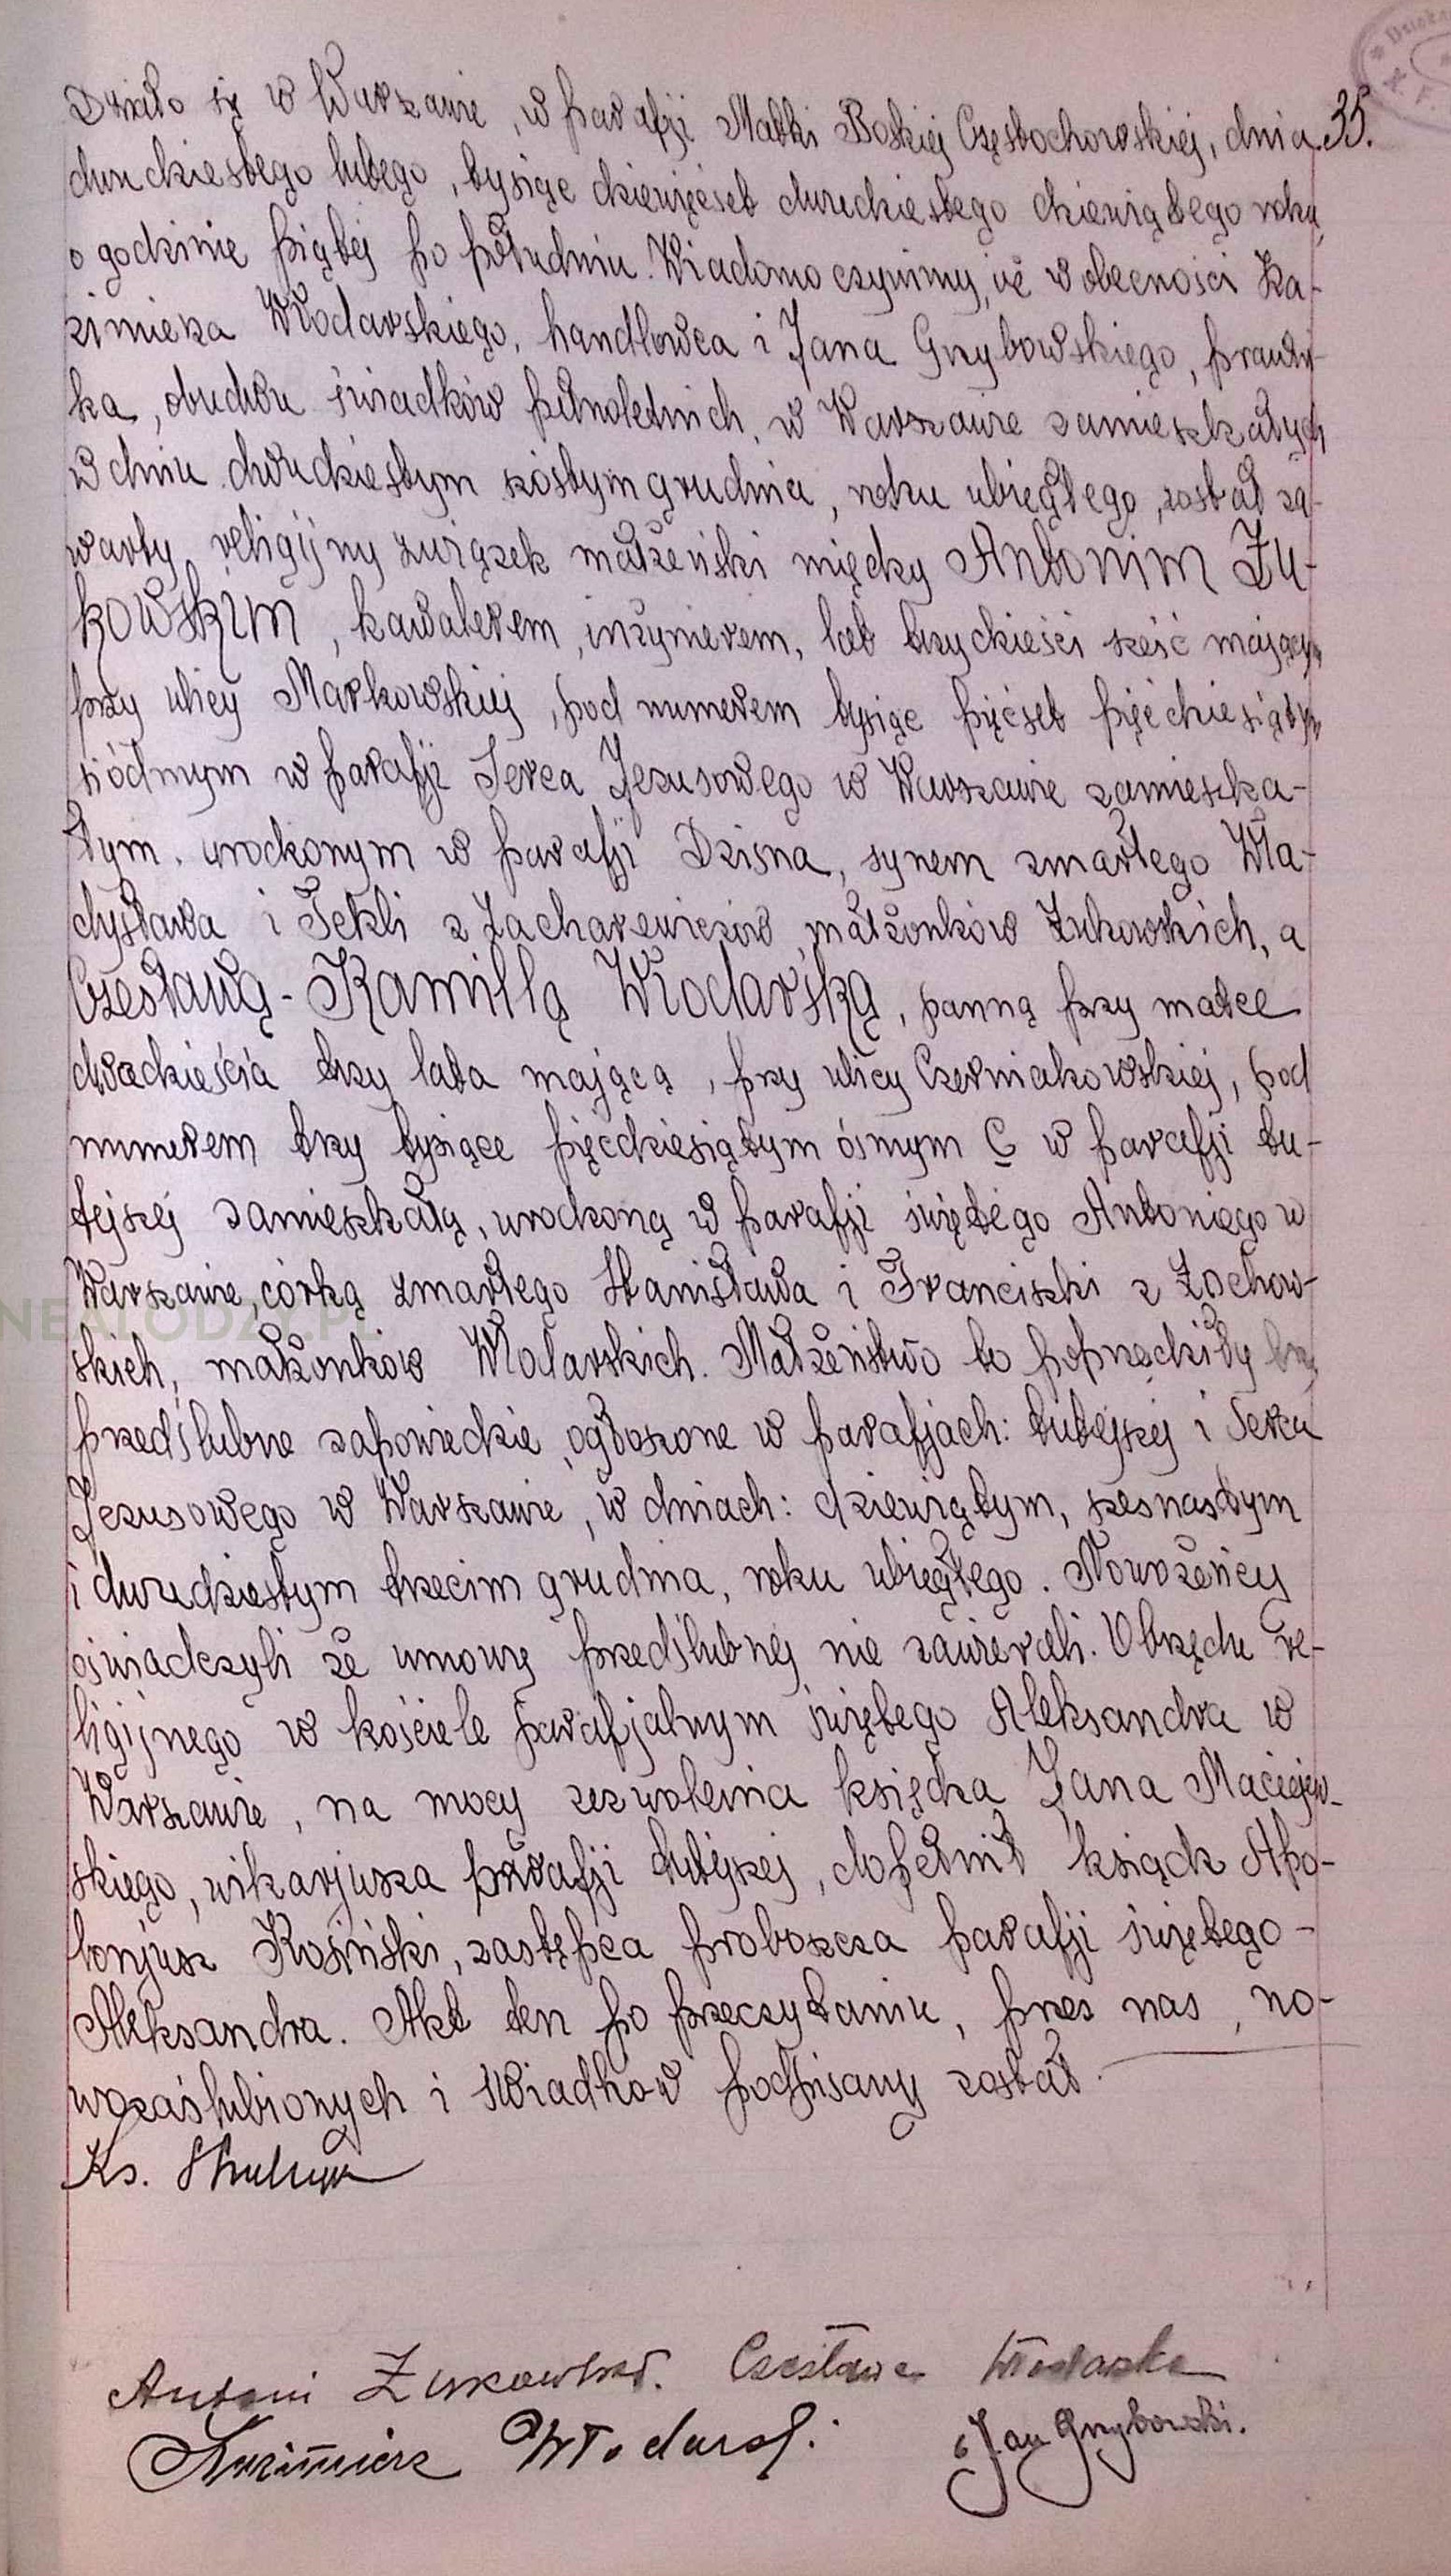 35.
Działo się w Warszawie, w parafji Matki Boskiej Częstochowskiej, dnia
dwudziestego lutego, tysiąc dziewięćset dwudziestego dziewiątego roku,
o godzinie piątej po południu. Wiadomo czynimy, iż w obecności Ka-
zimierza Włodarskiego, handlowca i Jana Grzybowskiego, prawni-
ka, obudwu świadków pełnoletnich, w Warszawie zamieszkałych
w dniu dwudziestym szóstym grudnia, roku ubiegłego, został za-
warty religijny związek małżeński między Antonim Żu-
kowskim, kawalerem, inżynierem, lat trzydzieści sześć mającym
przy ulicy Markowskiej, pod numerem tysiąc pięćset pięćdziesiątym
siódmym w parafji Serca Jezusowego w Warszawie zamieszka-
łym, urodzonym w parafji Dzisna, synem zmarłego Wła-
dysława i Tekli z Zacharewiczów, małżonków Żukowskich, a
Czesławą-Kamillą Włodarską, panną przy matce
dwadzieścia trzy lata mającą, przy ulicy Czerniakowskiej, pod
numerem trzy tysiące pięćdziesiątym ósmym C w parafji tu-
tejszej zamieszkałą, urodzoną w parafji świętego Antoniego w
Warszawie, córką zmarłego Stanisława i Franciszki z Żochow-
skich, małżonków Włodarskich. Małżeństwo to poprzedziły trzy
przedślubne zapowiedzie, ogłoszone w parafjach: tutejszej i Serca
Jezusowego w Warszawie, w dniach: dziewiątym, szesnastym
i dwudziestym trzecim grudnia, roku ubiegłego. Nowożeńcy
oświadczyli że umowy przedślubnej nie zawierali. Obrzędu re-
ligijnego w kościele parafjalnym świętego Aleksandra w
Warszawie, na mocy zezwolenia księdza Jana Maciejew-
skiego, wikarjusza parafji tutejszej, dopełnił ksiądz Apo-
lonjusz Kosiński, zastępca proboszcza parafji świętego-
Aleksandra. Akt ten po przeczytaniu, przez nas, no-
wozaślubionych i świadków podpisany został.
Ks.
Antoni Żukowski. Czesława Włodarska
Kazimierz Włodarski. Jan Grzybowski.